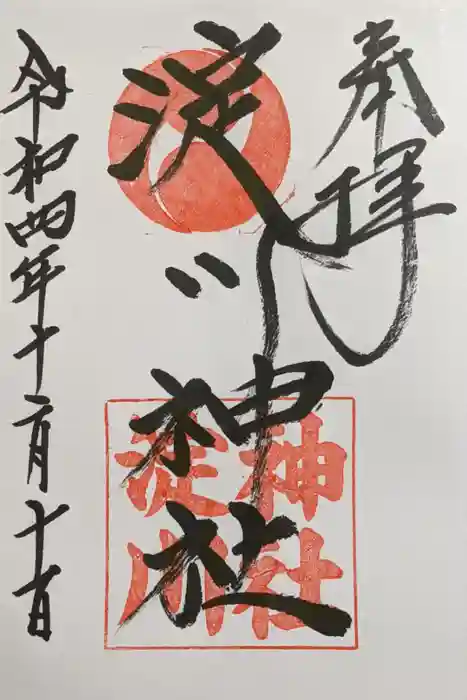 奉拝
淀川神社
神社
淀川
令和四年十二月十一日